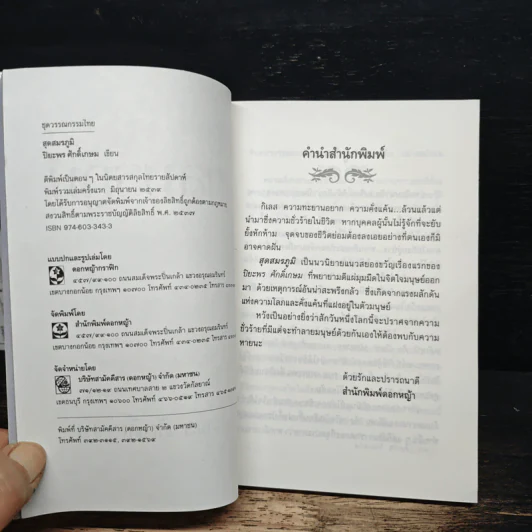 ชุดวรรณกรรมไทย
สุดสมรภูมิ
ปิยะพร ศักดิ์เกษม เขียน
ตีพิมพ์เป็นตอน ๆ ในนิตยสารสกุลไทยรายสัปดาห์
พิมพ์รวมเล่มครั้งแรก มิถุนายน ๒๕๓๙
โดยได้รับการอนุญาตจัดพิมพ์จากเจ้าของลิขสิทธิ์ถูกต้องตามกฎหมาย
สงวนลิขสิทธิ์ตามพระราชบัญญัติลิขสิทธิ์ พ.ศ. ๒๕๓๗
ISBN 974-603-343-3
แบบปกและรูปเล่มโดย
ดอกหญ้ากราฟิก
๔๕๗/๔๔-๑๐๐ ถนนสมเด็จพระปิ่นเกล้า แขวงอรุณอมรินทร์
เขตบางกอกน้อย กรุงเทพฯ ๑๐๗๐๐
จัดพิมพ์โดย
สำนักพิมพ์ดอกหญ้า
๔๕๗/๔๔-๑๐๐ ถนนสมเด็จพระปิ่นเกล้า แขวงอรุณอมรินทร์
เขตบางกอกน้อย กรุงเทพฯ ๑๐๗๐๐
จัดจำหน่ายโดย
บริษัทสามัคคีสาร (ดอกหญ้า) จำกัด (มหาชน)
ถนนเทศบาลสาย ๒ แขวงวัดกัลยาณ์
เขตธนบุรี กรุงเทพฯ ๑๐๖๐๐
พิมพ์ที่ บริษัทสามัคคีสาร (ดอกหญ้า) จำกัด (มหาชน)
คำนำสำนักพิมพ์
กิเลส ความทะยานอยาก ความคั่งแค้น...ล้วนแล้วแต่
นำมาซึ่งความชั่วร้ายในชีวิต หากบุคคลผู้นั้นไม่รู้จักที่จะยับ
ยั้งหักห้าม จุดจบของชีวิตย่อมต้องลงเอยอย่างที่ตนเองก็มิ
อาจคาดฝัน
สุดสมรภูมิ เป็นนวนิยายแนวสยองขวัญเรื่องแรกของ
ปิยะพร ศักดิ์เกษม ที่พยายามตีแผ่มุมมืดในจิตใจมนุษย์ออก
มา ด้วยเหตุการณ์อันน่าสะพรึงกลัว ซึ่งเกิดจากแรงผลักดัน
แห่งความโลภและคั่งแค้นที่แฝงอยู่ในตัวมนุษย์
หวังเป็นอย่างยิ่งว่าสักวันหนึ่งโลกนี้จะปราศจากความ
ชั่วร้ายที่มีแต่จะทำลายมนุษย์ด้วยกันเองให้ต้องพบกับความ
หายนะ
ด้วยรักและปรารถนาดี
สำนักพิมพ์ดอกหญ้า